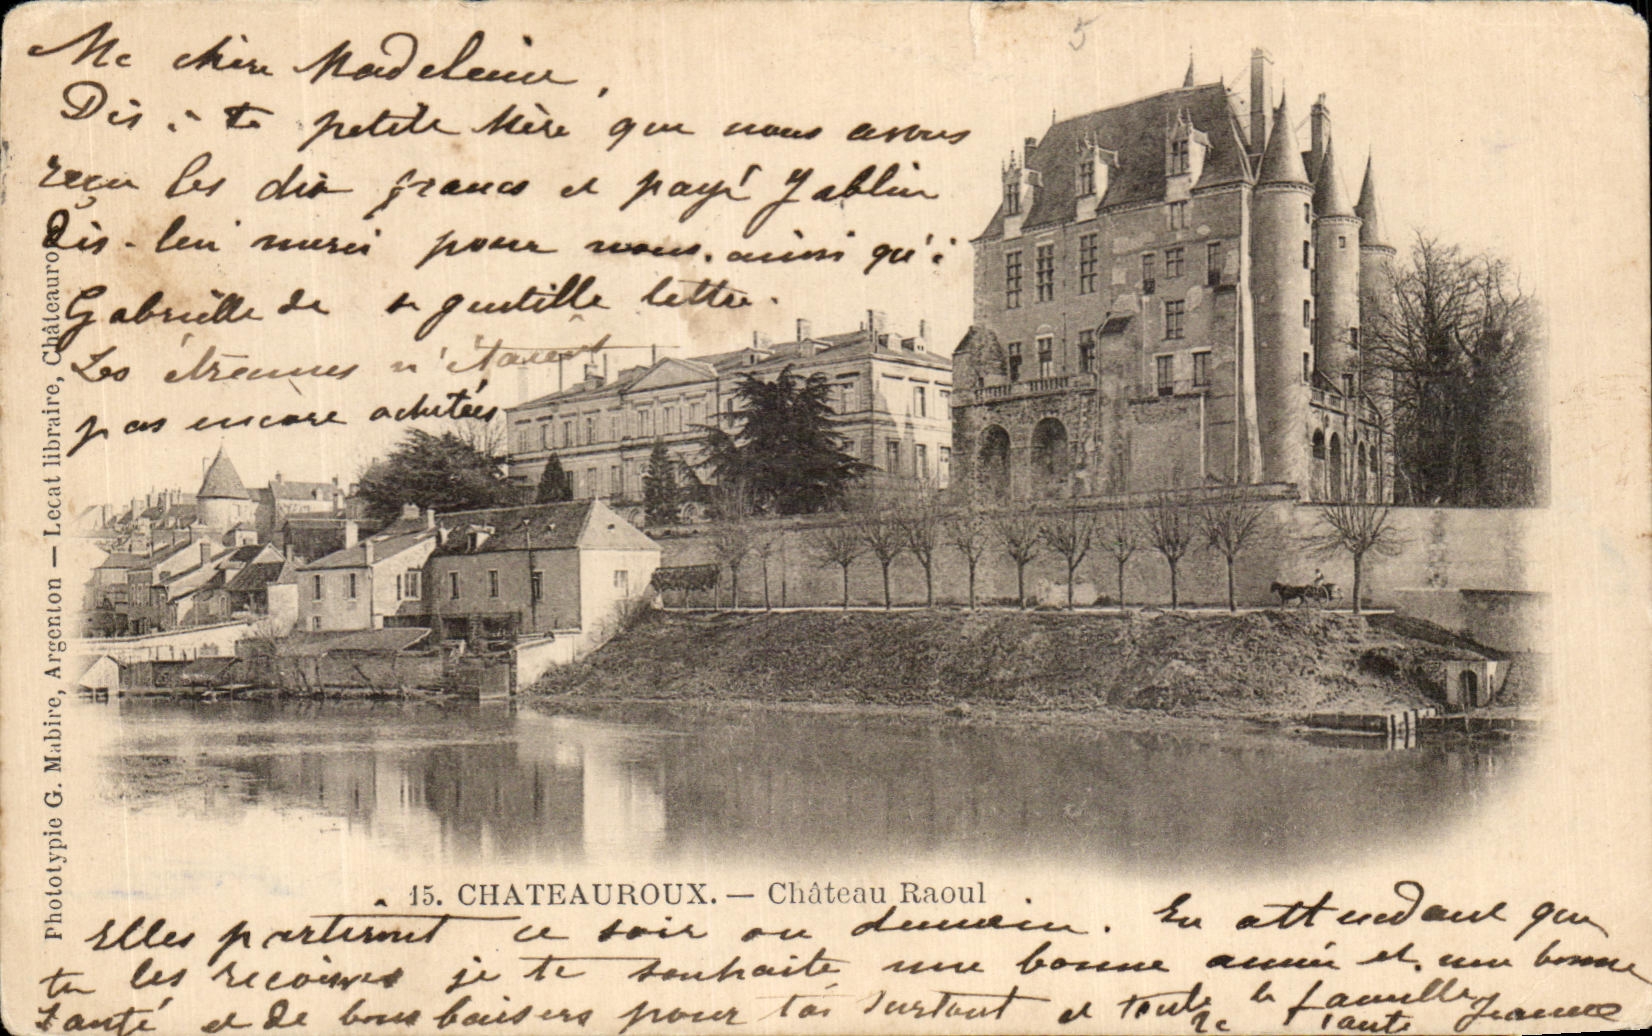 Ma chère Madeleine,
Dis à ta petite Mère que nous avons
reçu les dix francs et payé Jablin
Dis-lui merci pour nous, ainsi qu'à
Gabrielle de sa gentille lettre.
Les étrennes n'étaient
pas encore achetées
15. CHATEAUROUX. — Château Raoul
Elles partiront ce soir ou demain. En attendant que
tu les reçoives je te souhaite une bonne année et une bonne
santé et de bons baisers pour toi surtout et toute la famille
Ta tante Jeanne
Phototypie G. Mabire, Argenton — Lecat libraire, Châteauroux
5